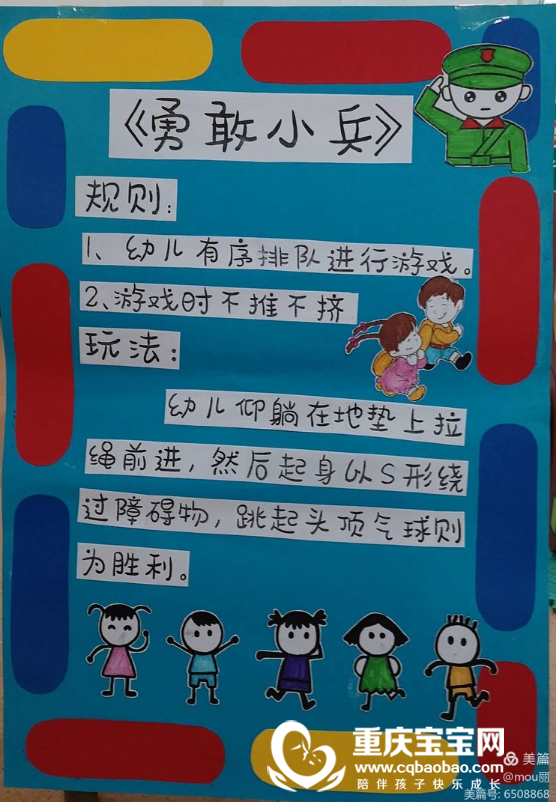 《勇敢小兵》
规则：
1、幼儿有序排队进行游戏。
2、游戏时不推不挤
玩法：
幼儿仰躺在地垫上拉
绳前进，然后起身以S形绕
过障碍物，跳起头顶气球则
为胜利。
重庆宝宝网
www.cqbaobao.com
陪伴孩子快乐成长
美篇
@mou丽
美篇号: 6508868